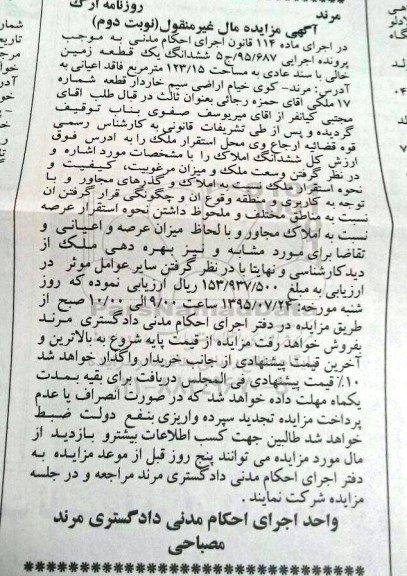 روزنامه ارک
مرند
آگهی مزایده مال غیرمنقول(نوبت دوم)
در اجرای ماده ۱۱۴ قانون اجرای احکام مدنی به موجب
پرونده اجرایی ۹۵/۶۸۷/ج۵ ششدانگ یک قطعه زمین
خالی با سند عادی به مساحت ۱۲۳/۱۵ مترمربع فاقد اعیانی به
آدرس: مرند- کوی خیام اراضی سیم خاردار قطعه شماره
۱۷ ملکی اقای حمزه رجائی بعنوان ثالث در قبال طلب اقای
مجتبی کیانفر از اقای میریوسف صفوی بناب توقیف
گردیده و پس از طی تشریفات قانونی به کارشناس رسمی
قوه قضائیه ارجاع وی محل استقرار ملک را به ادرس فوق
ارزش کل ششدانگ املاک را با مشخصات مورد اشاره و
در نظر گرفتن وسعت ملک و میزان مرغوبیت، کیفیت و
نحوه استقرار ملک نسبت به املاک و گذرهای مجاور و با
توجه به کاربری و منطقه وقوع ان و چگونگی قرار گرفتن ان
نسبت به مناطق مختلف و ملحوظ داشتن نحوه استقرار عرصه
نسبت به املاک مجاور و با لحاظ میزان عرصه و اعیانی و
تقاضا برای مورد مشابه و نیز بهره دهی ملک از
دید کارشناسی و نهایتا با در نظر گرفتن سایر عوامل موثر در
ارزیابی به مبلغ ۱۵۳/۹۳۷/۵۰۰ ریال ارزیابی نموده که روز
شنبه مورخه: ۱۳۹۵/۰۷/۲۴ ساعت ۹/۰۰ الی ۱۰/۰۰ صبح از
طریق مزایده در دفتر اجرای احکام مدنی دادگستری مرند
بفروش خواهد رفت مزایده از قیمت پایه شروع به بالاترین و
آخرین قیمت پیشنهادی از جانب خریدار واگذار خواهد شد
۱۰٪ قیمت پیشنهادی فی المجلس دریافت برای بقیه بمدت
یکماه مهلت داده خواهد شد که در صورت انصراف یا عدم
پرداخت مزایده تجدید سپرده واریزی بنفع دولت ضبط
خواهد شد طالبین جهت کسب اطلاعات بیشترو بازدید از
مال مورد مزایده می توانند پنج روز قبل از موعد مزایده به
دفتر اجرای احکام مدنی دادگستری مرند مراجعه و در جلسه
مزایده شرکت نمایند .
واحد اجرای احکام مدنی دادگستری مرند
مصباحی